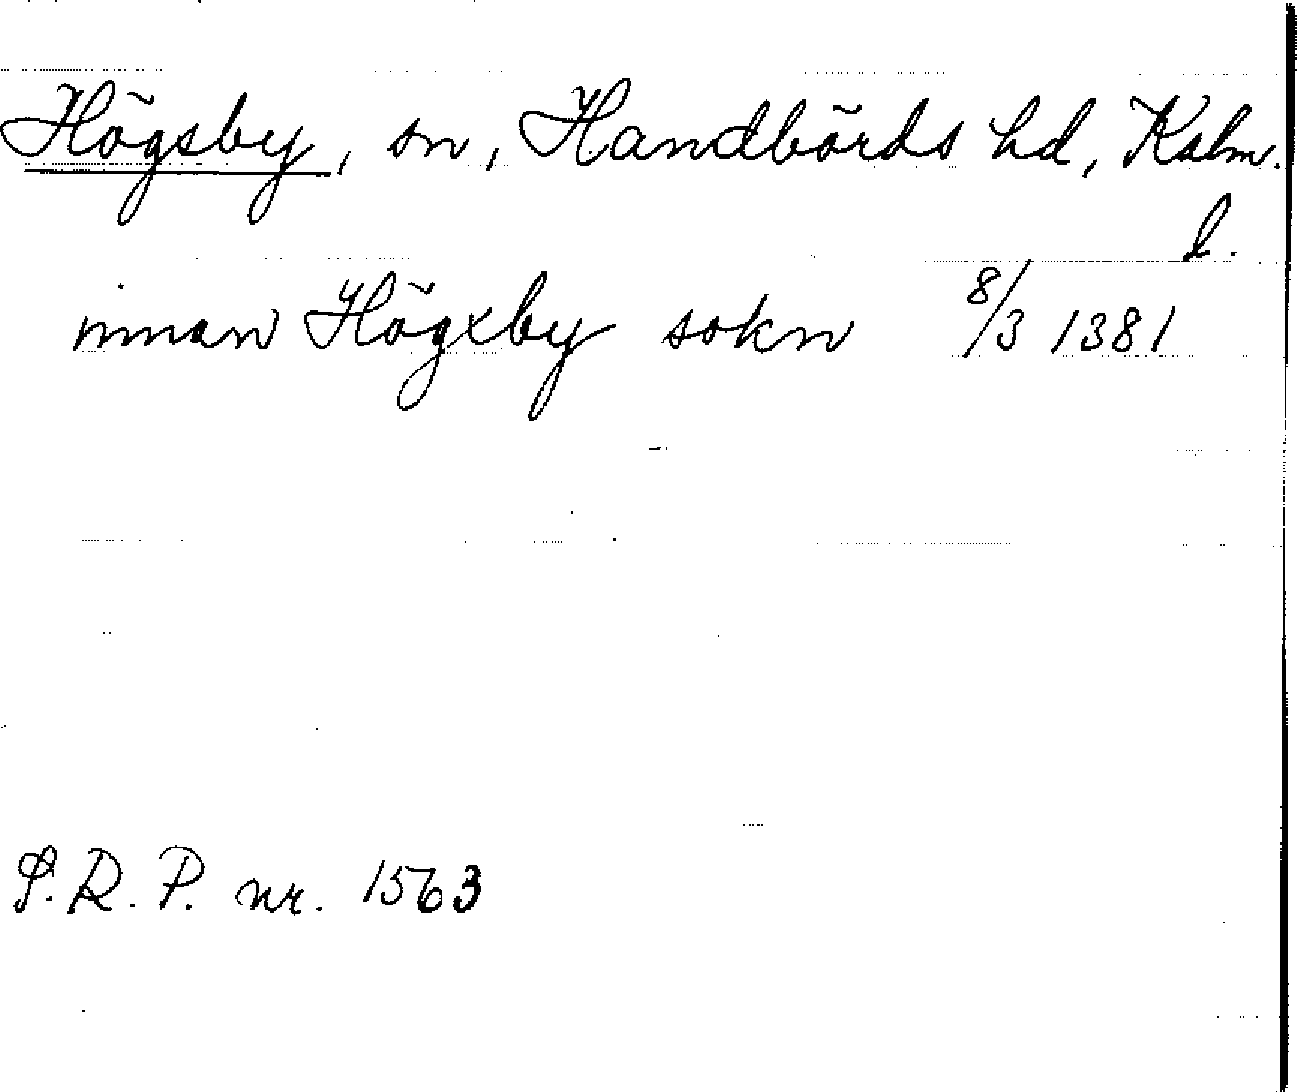 Högsby, sn, Handbörds hd, Kalm.
l.
innan Högxby sokn 8/3 1381
S.R.P. nr. 1563